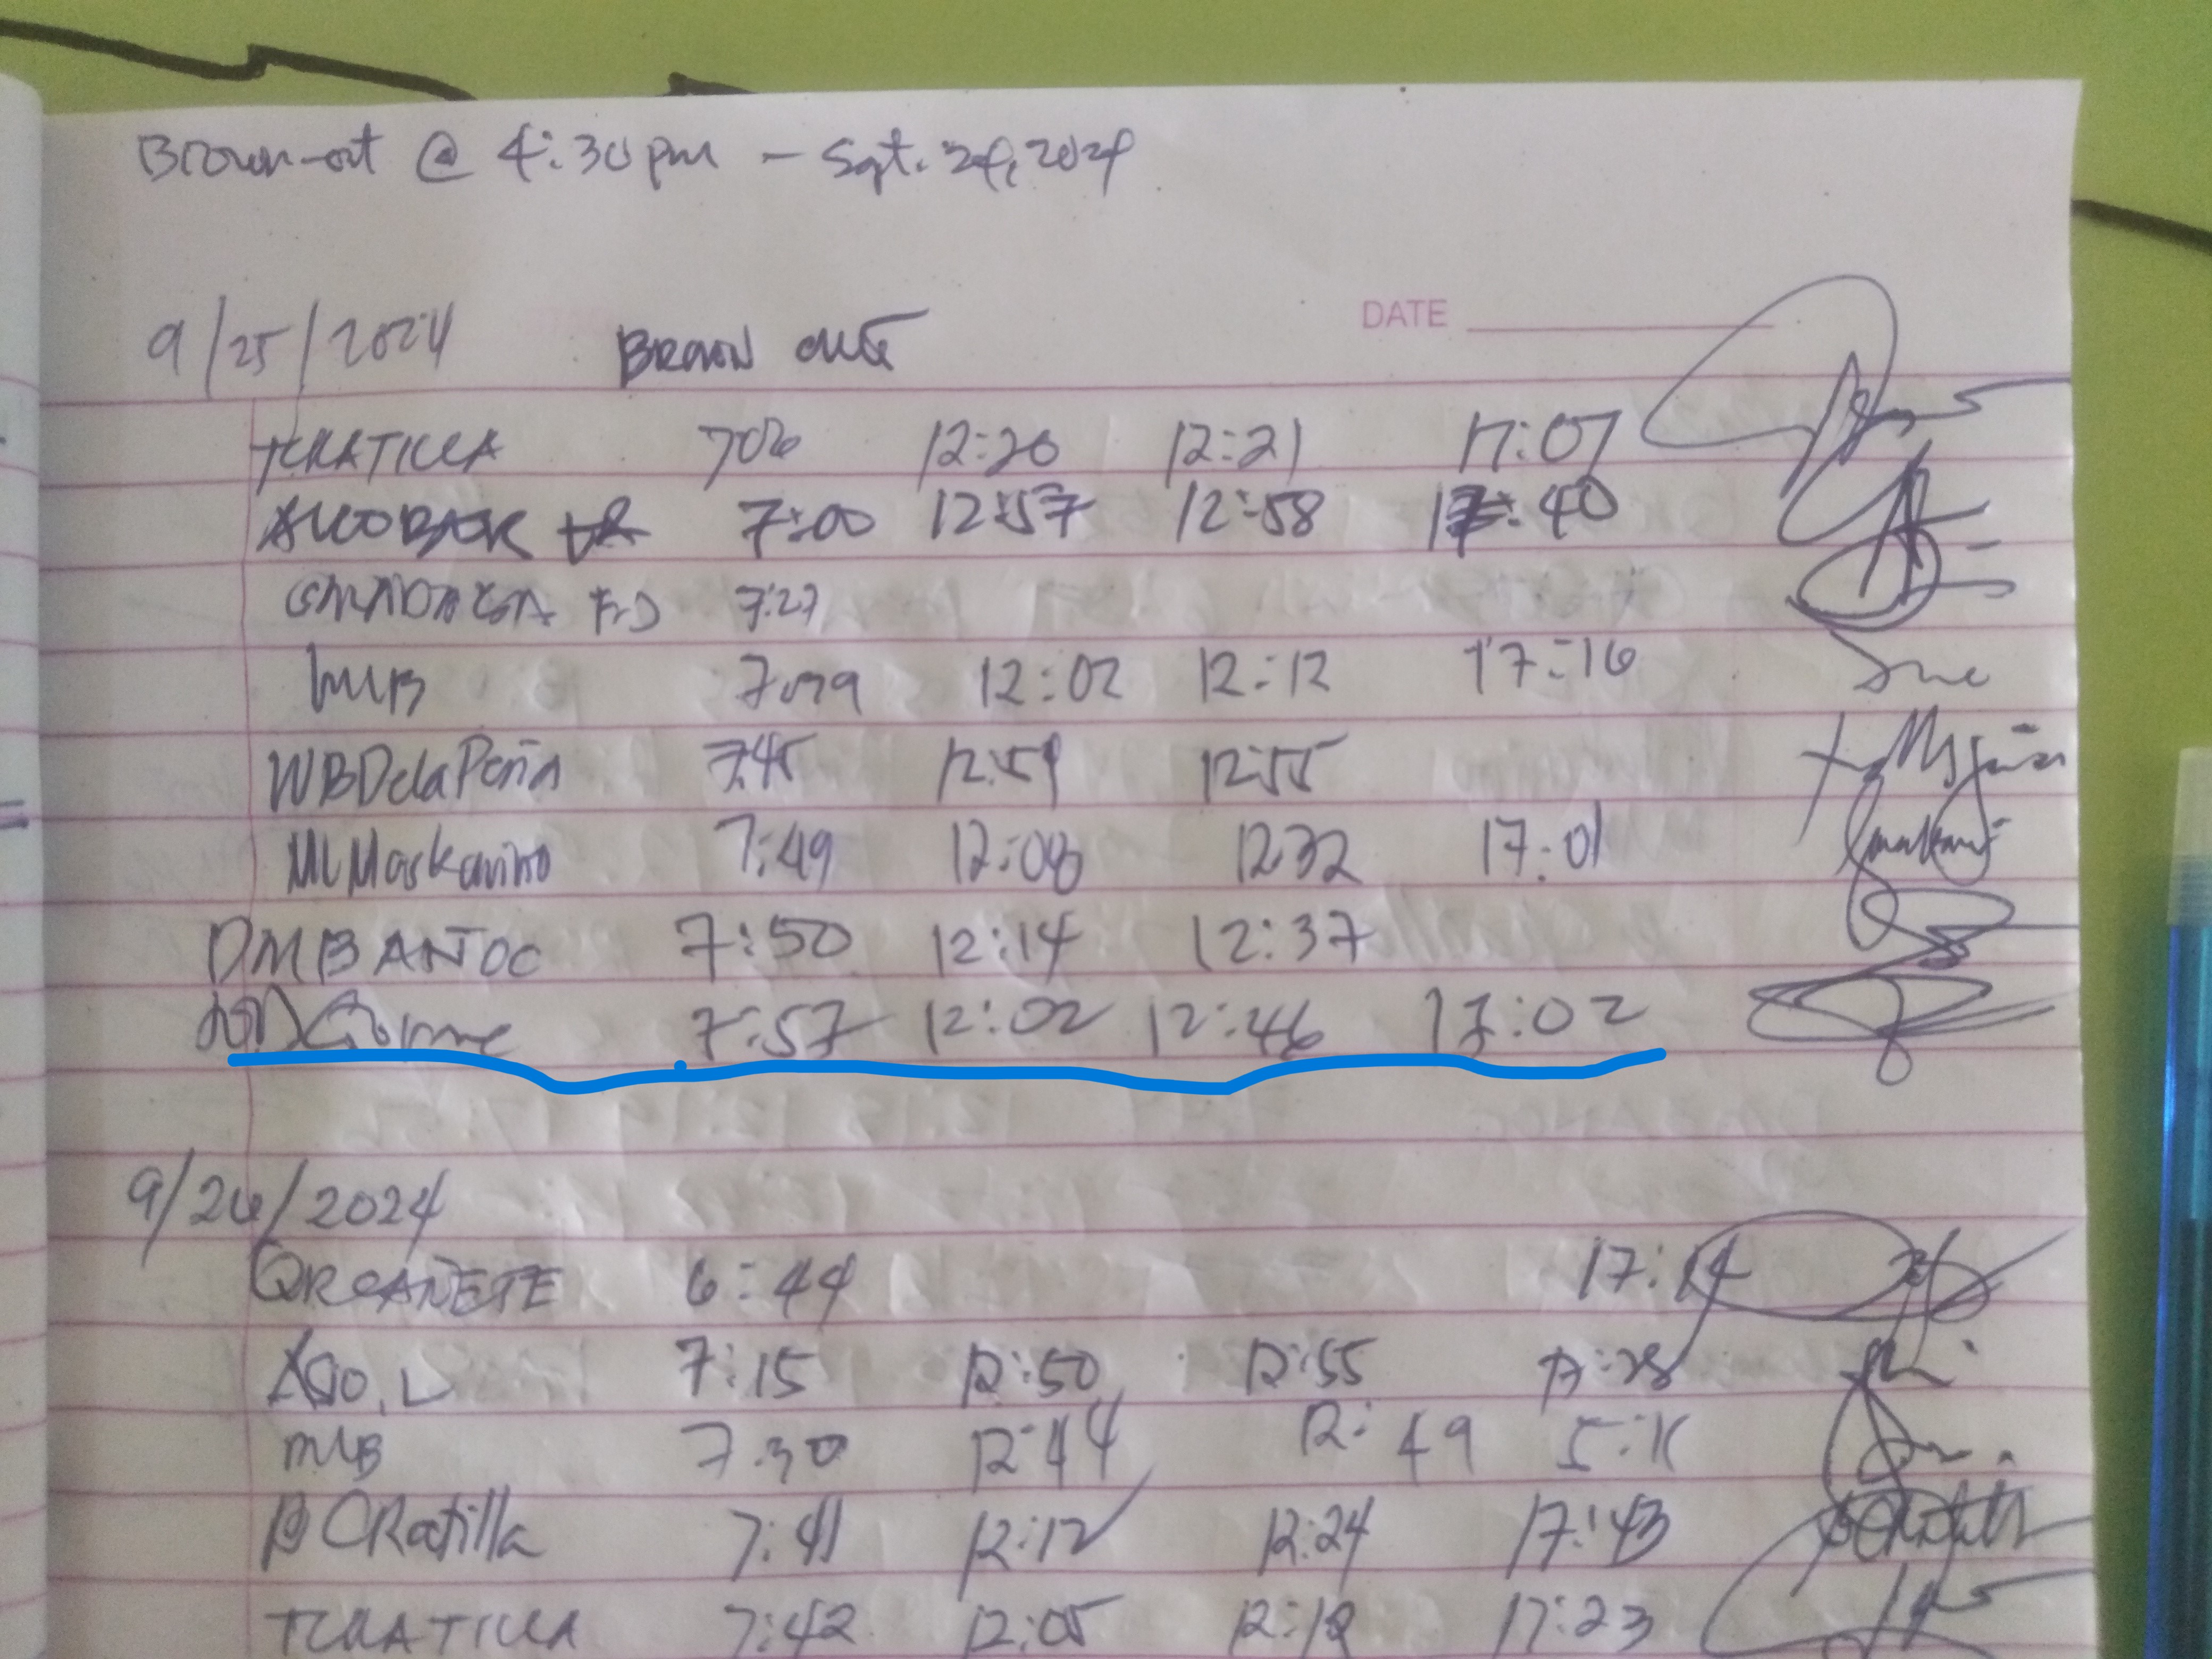 Brown-out @ 4:30 pm - Sept. 24, 2024
DATE
9/25/2024 BROWN OUT
TCRATILLA 706 12:20 12:21 17:07
7:00 12:57 12:58 17:40
7:27
MLB 7:39 12:02 12:12 17:16
WBDelaPeña 7:45 12:54 12:55
MLMaskariño 7:49 12:08 12:32 17:01
DMBANTOC 7:50 12:14 12:37
7:57 12:02 12:46 17:02
9/26/2024
QRCAÑETE 6:44 17:14
AGO, L 7:15 12:50 12:55 17:28
MLB 7:30 12:44 12:49
BCRatilla 7:41 12:12 12:24 17:43
TCRATILLA 7:42 12:05 12:12 17:23